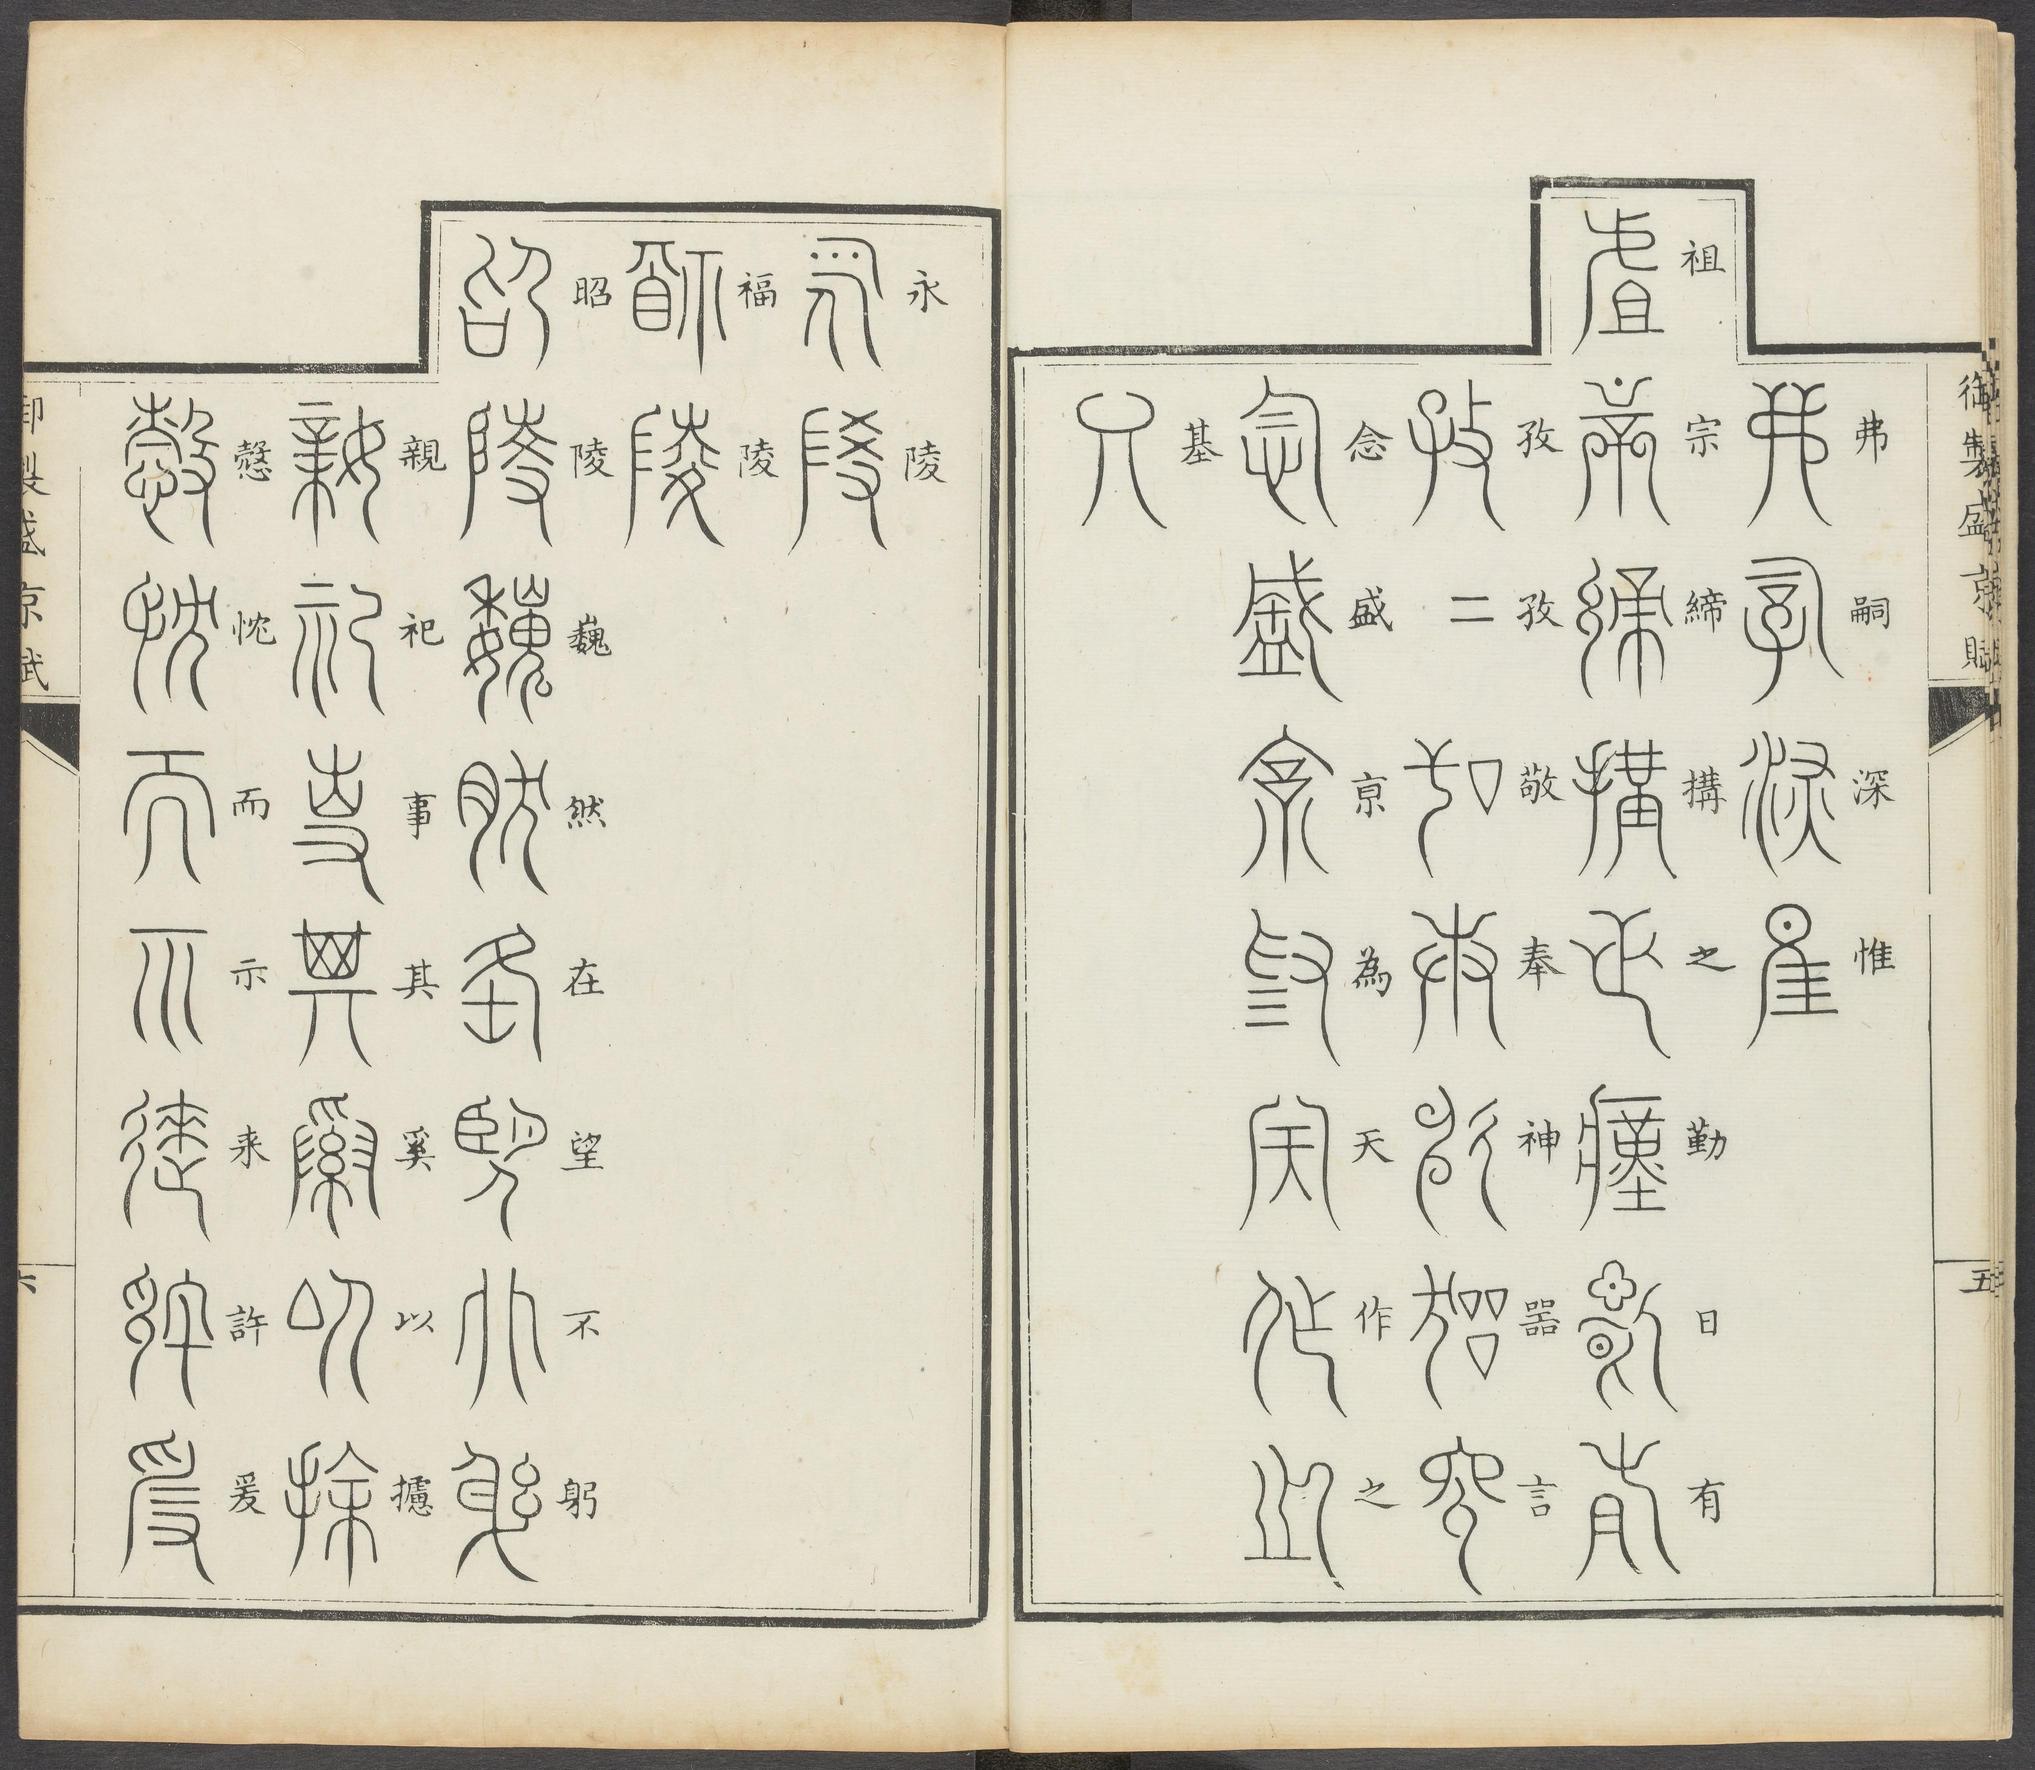 御製盛京賦
五
弗嗣深惟
祖宗締搆之勤日有
孜孜敬奉神噐言
念盛亰為天作之
基
永陵
福陵
昭陵巍然在望不躬
親祀事其奚以攄
慤忱而示来許爰
御製盛京賦
六